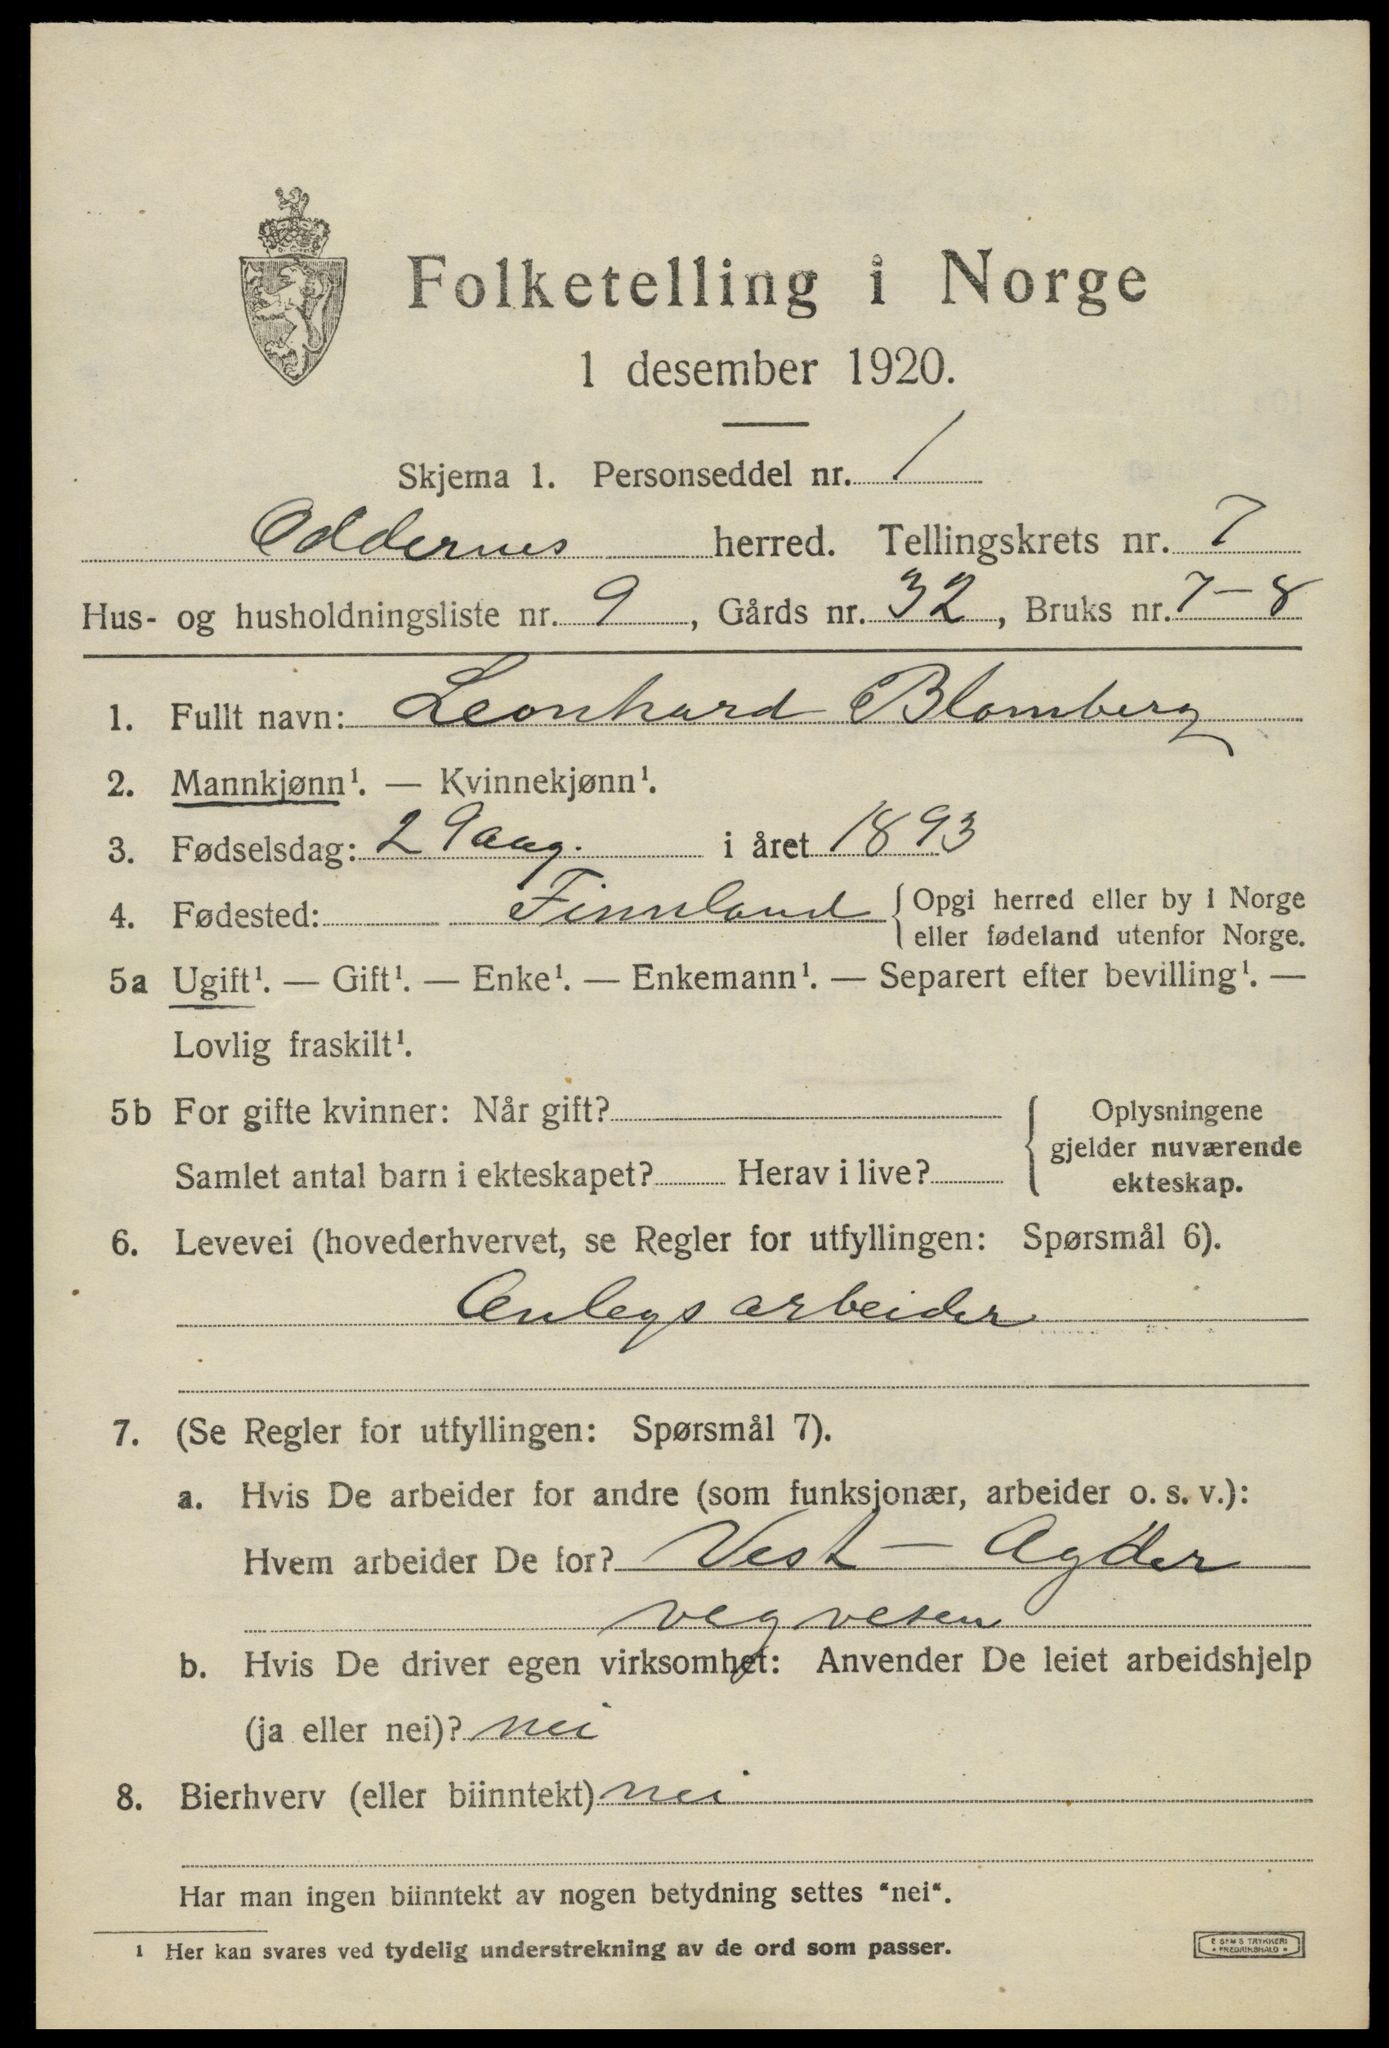 Folketelling i Norge
1 desember 1920.
Skjema 1. Personseddel nr. 1
Oddernes herred. Tellingskrets nr. 7
Hus- og husholdningsliste nr. 9, Gårds nr. 32, Bruks nr. 7-8
1. Fullt navn: Leonhard Blomberg
2. Mannkjønn¹. — Kvinnekjønn¹.
3. Fødselsdag: 29 aug. i året 1893
4. Fødested: Finnland { Opgi herred eller by i Norge
eller fødeland utenfor Norge.
5a Ugift¹. — Gift¹. — Enke¹. — Enkemann¹. — Separert efter bevilling¹. —
Lovlig fraskilt¹.
5b For gifte kvinner: Når gift?
Samlet antal barn i ekteskapet? Herav i live?
Oplysningene
gjelder nuværende
ekteskap.
6. Levevei (hovederhvervet, se Regler for utfyllingen: Spørsmål 6).
Anlegsarbeider
7. (Se Regler for utfyllingen: Spørsmål 7).
a. Hvis De arbeider for andre (som funksjonær, arbeider o. s. v.):
Hvem arbeider De for? Vest-Agder
vegvesen
b. Hvis De driver egen virksomhet: Anvender De leiet arbeidshjelp
(ja eller nei)? nei
8. Bierhverv (eller biinntekt) nei
Har man ingen biinntekt av nogen betydning settes "nei".
¹ Her kan svares ved tydelig understrekning av de ord som passer.
E SEMS TRYKKERI
* FREDRIKSHALD *